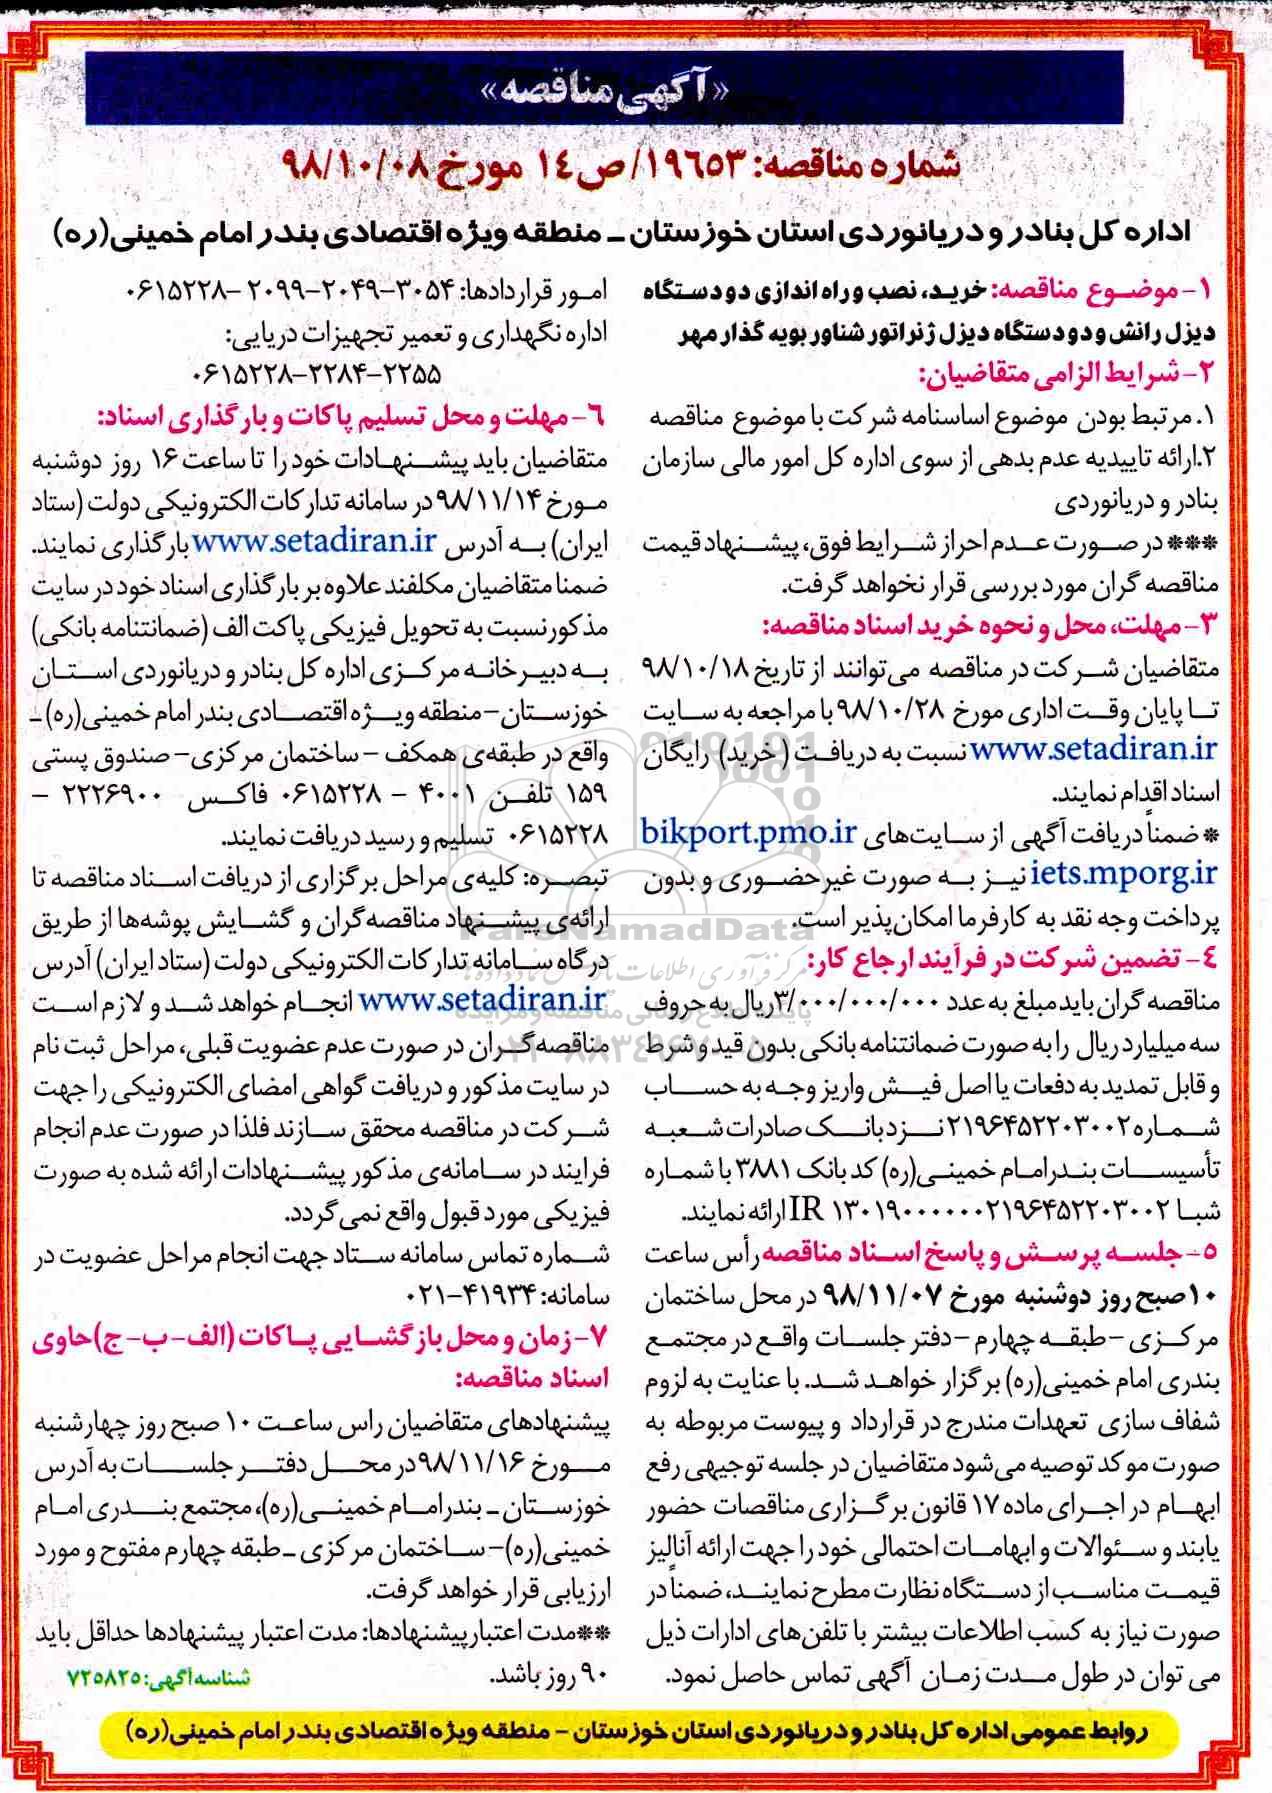 «آگهی مناقصه»
شماره مناقصه: ۱۹۶۵۳/ص۱۴ مورخ ۹۸/۱۰/۰۸
اداره کل بنادر و دریانوردی استان خوزستان ـ منطقه ویژه اقتصادی بندر امام خمینی(ره)
۱- موضوع مناقصه: خرید، نصب و راه اندازی دو دستگاه
دیزل رانش و دو دستگاه دیزل ژنراتور شناور بویه گذار مهر
۲- شرایط الزامی متقاضیان:
۱. مرتبط بودن موضوع اساسنامه شرکت با موضوع مناقصه
۲.ارائه تاییدیه عدم بدهی از سوی اداره کل امور مالی سازمان
بنادر و دریانوردی
*** در صورت عدم احراز شرایط فوق، پیشنهاد قیمت
مناقصه گران مورد بررسی قرار نخواهد گرفت.
۳- مهلت، محل و نحوه خرید اسناد مناقصه:
متقاضیان شرکت در مناقصه می‌توانند از تاریخ ۹۸/۱۰/۱۸
تا پایان وقت اداری مورخ ۹۸/۱۰/۲۸ با مراجعه به سایت
www.setadiran.ir نسبت به دریافت (خرید) رایگان
اسناد اقدام نمایند.
* ضمناً دریافت آگهی از سایت‌های bikport.pmo.ir
iets.mporg.ir نیز به صورت غیرحضوری و بدون
پرداخت وجه نقد به کارفرما امکان‌پذیر است.
۴- تضمین شرکت در فرآیند ارجاع کار:
مناقصه گران باید مبلغ به عدد ۳/۰۰۰/۰۰۰/۰۰۰ریال به حروف
سه میلیارد ریال را به صورت ضمانتنامه بانکی بدون قید و شرط
و قابل تمدید به دفعات یا اصل فیش واریز وجه به حساب
شماره ۲۱۹۶۴۵۲۲۰۳۰۰۲ نزد بانک صادرات شعبه
تأسیسات بندرامام خمینی(ره) کد بانک ۳۸۸۱ با شماره
شبا IR ۱۳۰۱۹۰۰۰۰۰۰۰۲۱۹۶۴۵۲۲۰۳۰۰۲ ارائه نمایند.
۵- جلسه پرسش و پاسخ اسناد مناقصه رأس ساعت
۱۰صبح روز دوشنبه مورخ ۹۸/۱۱/۰۷ در محل ساختمان
مرکزی -طبقه چهارم -دفتر جلسات واقع در مجتمع
بندری امام خمینی(ره) برگزار خواهد شد. با عنایت به لزوم
شفاف سازی تعهدات مندرج در قرارداد و پیوست مربوطه به
صورت موکد توصیه می‌شود متقاضیان در جلسه توجیهی رفع
ابهام در اجرای ماده ۱۷ قانون برگزاری مناقصات حضور
یابند و سئوالات و ابهامات احتمالی خود را جهت ارائه آنالیز
قیمت مناسب از دستگاه نظارت مطرح نمایند، ضمناً در
صورت نیاز به کسب اطلاعات بیشتر با تلفن‌های ادارات ذیل
می توان در طول مدت زمان آگهی تماس حاصل نمود.
امور قراردادها: ۳۰۵۴-۲۰۴۹-۲۰۹۹ -۰۶۱۵۲۲۸
اداره نگهداری و تعمیر تجهیزات دریایی:
۲۲۵۵-۲۲۸۴-۰۶۱۵۲۲۸
۶- مهلت و محل تسلیم پاکات و بارگذاری اسناد:
متقاضیان باید پیشنهادات خود را تا ساعت ۱۶ روز دوشنبه
مورخ ۹۸/۱۱/۱۴ در سامانه تدارکات الکترونیکی دولت (ستاد
ایران) به آدرس www.setadiran.ir بارگذاری نمایند.
ضمنا متقاضیان مکلفند علاوه بر بارگذاری اسناد خود در سایت
مذکور نسبت به تحویل فیزیکی پاکت الف (ضمانتنامه بانکی)
به دبیرخانه مرکزی اداره کل بنادر و دریانوردی استان
خوزستان -منطقه ویژه اقتصادی بندر امام خمینی(ره) ـ
واقع در طبقه‌ی همکف - ساختمان مرکزی- صندوق پستی
۱۵۹ تلفن ۴۰۰۱ - ۰۶۱۵۲۲۸ فاکس ۲۲۲۶۹۰۰ -
۰۶۱۵۲۲۸ تسلیم و رسید دریافت نمایند.
تبصره: کلیه‌ی مراحل برگزاری از دریافت اسناد مناقصه تا
ارائه‌ی پیشنهاد مناقصه‌گران و گشایش پوشه‌ها از طریق
درگاه سامانه تدارکات الکترونیکی دولت (ستاد ایران) آدرس
www.setadiran.ir انجام خواهد شد و لازم است
مناقصه‌گران در صورت عدم عضویت قبلی، مراحل ثبت نام
در سایت مذکور و دریافت گواهی امضای الکترونیکی را جهت
شرکت در مناقصه محقق سازند فلذا در صورت عدم انجام
فرایند در سامانه‌ی مذکور پیشنهادات ارائه شده به صورت
فیزیکی مورد قبول واقع نمی گردد.
شماره تماس سامانه ستاد جهت انجام مراحل عضویت در
سامانه: ۴۱۹۳۴-۰۲۱
۷- زمان و محل بازگشایی پاکات (الف- ب- ج) حاوی
اسناد مناقصه:
پیشنهادهای متقاضیان راس ساعت ۱۰ صبح روز چهارشنبه
مورخ ۹۸/۱۱/۱۶ در محل دفتر جلسات به آدرس
خوزستان ـ بندرامام خمینی(ره)، مجتمع بندری امام
خمینی(ره)- ساختمان مرکزی ـ طبقه چهارم مفتوح و مورد
ارزیابی قرار خواهد گرفت.
**مدت اعتبار پیشنهادها: مدت اعتبار پیشنهادها حداقل باید
۹۰ روز باشد.
شناسه آگهی: ۷۲۵۸۲۵
روابط عمومی اداره کل بنادر و دریانوردی استان خوزستان - منطقه ویژه اقتصادی بندر امام خمینی(ره)
ParsNamadData